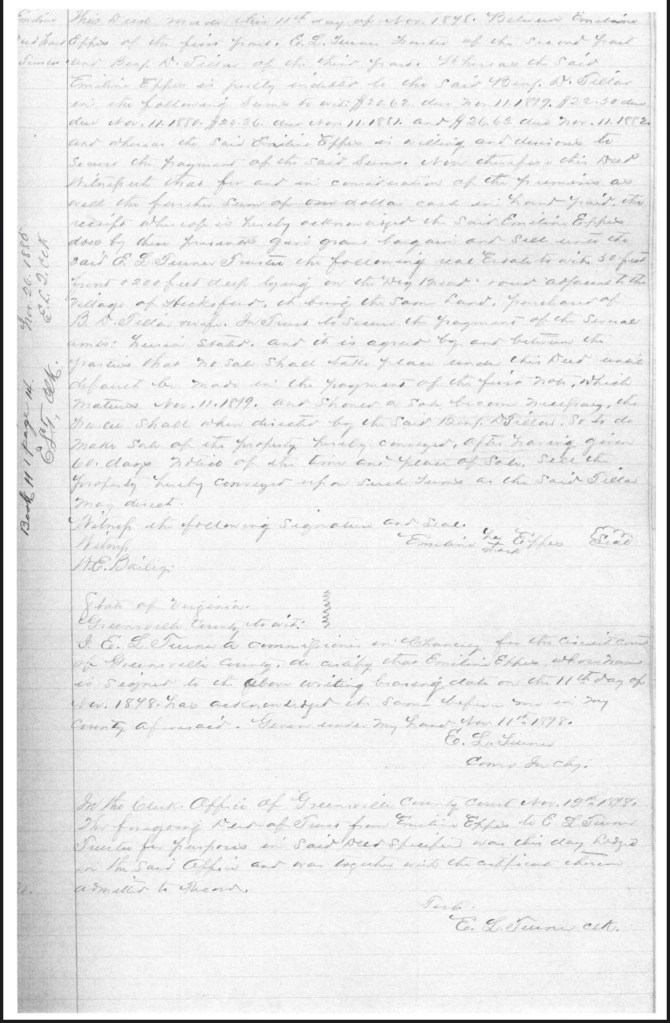 This Deed made this 11th day of Nov. 1878. Between Emiline
Eppes of the first part. E. L. Turner Trustee of the Second part
and Benj. D. Tillar of the third part. Whereas the said
Emiline Eppes is justly indebted to the said Benj. D. Tillar
in the following sums to wit: due Nov. 11. 1879. $22.30 due
due Nov. 11. 1880. $24.26 due Nov. 11. 1881. and $26.62 due Nov. 11. 1882.
and whereas the said Emiline Eppes is willing and desirous to
secure the payment of the said sums. Now therefore this Deed
Witnesseth that for and in consideration of the premises as
well the further sum of one dollar cash in hand paid, the
receipt whereof is hereby acknowledged the said Emiline Eppes
does by these presents give grant bargain and sell unto the
said E. L. Turner Trustee the following real Estate to wit: 50 feet
front & 200 feet deep lying on the road adjacent to the
Village of Hicksford, it being the same Land purchased of
B. D. Tillar In Trust to secure the payment of the several
sums herein stated. and it is agreed by and between the
parties that no sale shall take place under this Deed until
default be made in the payment of the first note, which
matures Nov. 11. 1879. and should a sale become necessary, the
Trustee shall when directed by the said Benj. D Tillar so to do
make sale of the property hereby conveyed, after having given
60 days notice of the time and place of sale. Sell the
property hereby conveyed upon such terms as the said Tillar
may direct.
Witness the following signature and seal.
Witness Emiline her Eppes Seal
mark
W. E. Bailey
State of Virginia
Greensville County to wit:
I. E. L. Turner a commissioner in Chancery for the Circuit Court
of Greensville County. do certify that Emiline Eppes whose name
is signed to the above writing bearing date on the 11th day of
Nov. 1878 has acknowledged the same before me in my
County aforesaid. Given under my hand Nov. 11th 1878.
E. L. Turner
Comr In Chy.
In the Clerks Office of Greensville County Court Nov. 19th 1878.
The foregoing Deed of Trust from Emiline Eppes to E L Turner
Trustee for purposes in said Deed specified was this day lodged
in the said Office and was together with the certificate thereon
admitted to Record.
Teste
E. L. Turner Clk.
Book 11, page 14. Nov. 26. 1880
E. L. T, Clk.
E. L. T, Clk